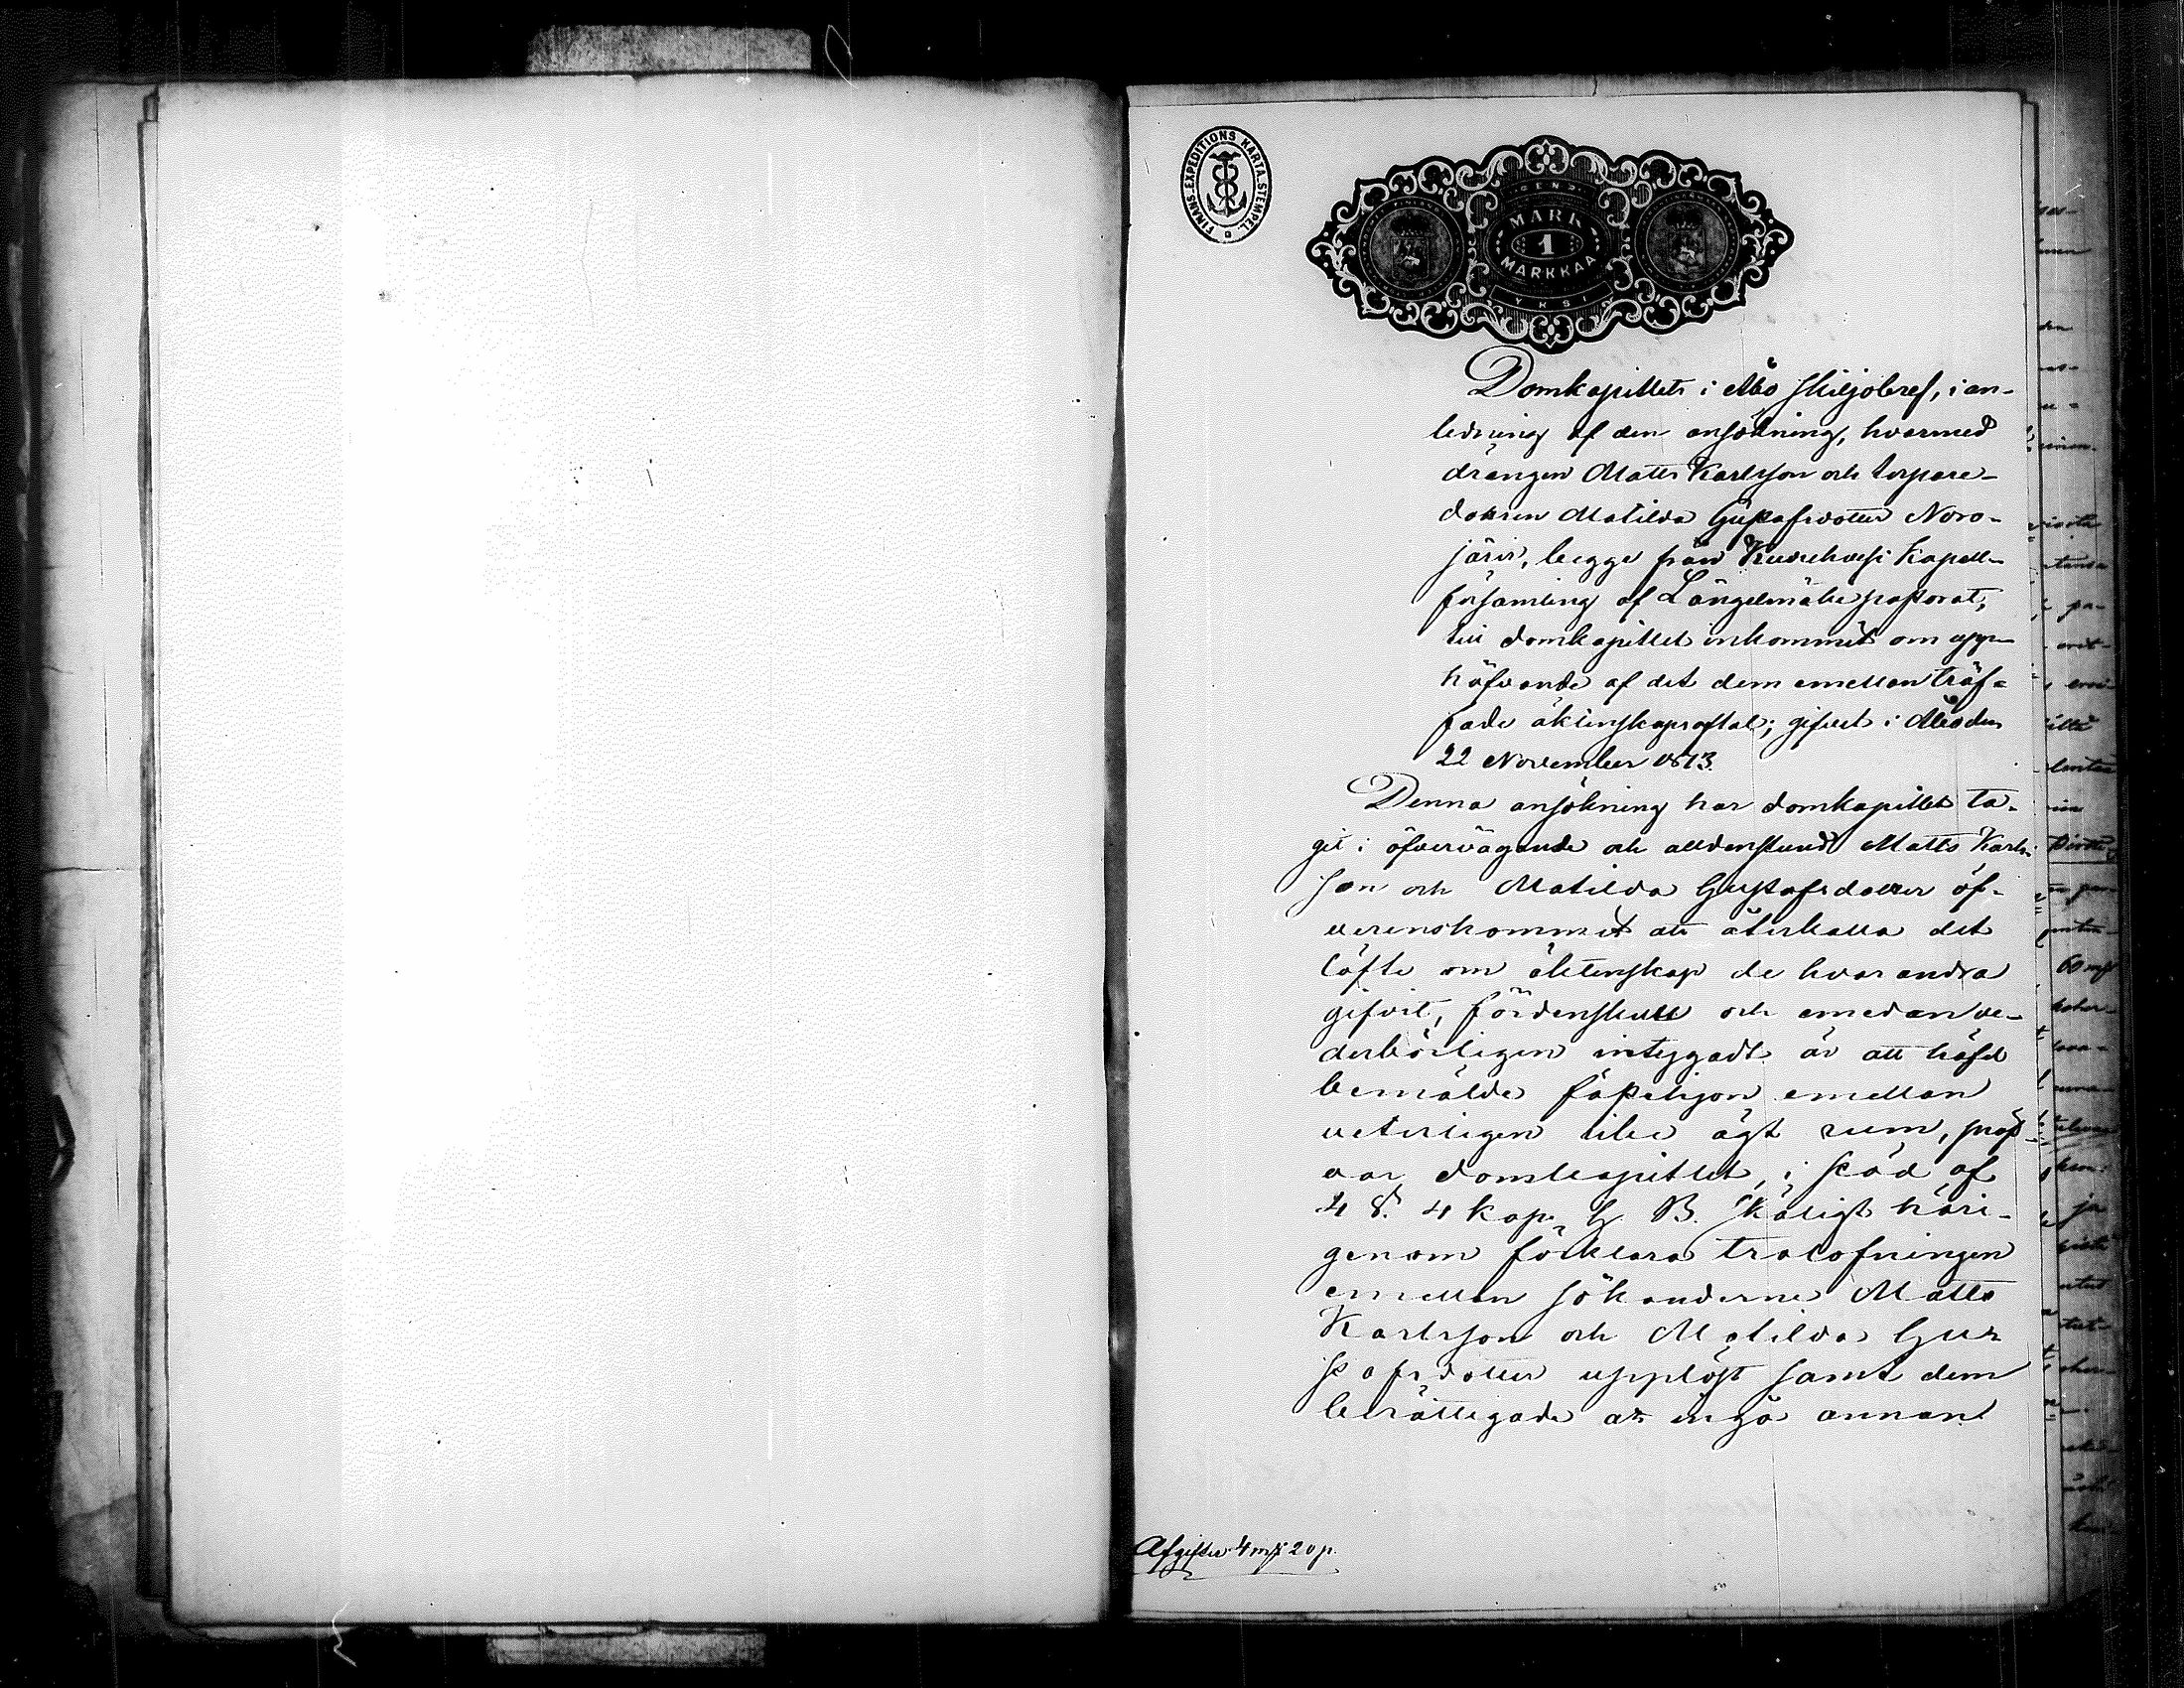 FINANS.EXPEDITIONS KARTA.STEMPEL
EN
MARK
1
MARKKAA
YKSI
Domkapitlets i Åbo skiljobref, i an-
ledning af den ansökning, hvarmed
drängen Matts Karlsson och torpare-
dottren Matilda Gustafsdotter Noro-
järvi, begge från Kuorehvesi Kapell-
församling af Längelmäki pastorat,
till domkapitlet inkommit om upp-
häfvande af det dem emellan träf-
fade äktenskapsaftal; gifvet i Åbo den
22 November 1873.
Denna ansökning har domkapitlet ta-
git i öfvervägande och alldenstund Matts Karls-
son och Matilda Gustafsdotter öf-
verenskommit att återkalla det
löfte om äktenskap de hvarandra
gifvit, fördenskull och emedan ve-
derbörligen intygadt är att häfd
bemälde fästehjon emellan
veterligen icke ägt rum, pröf-
var domkapitlet, i stöd af
4 §. 4 kap. G. B. skäligt häri-
genom förklara trolofningen
emellan sökanderne Matts
Karlsson och Matilda Gu-
stafsdotter upplöst samt dem
berättigade att ingå annan
Afgifter 4 mk 20 p.